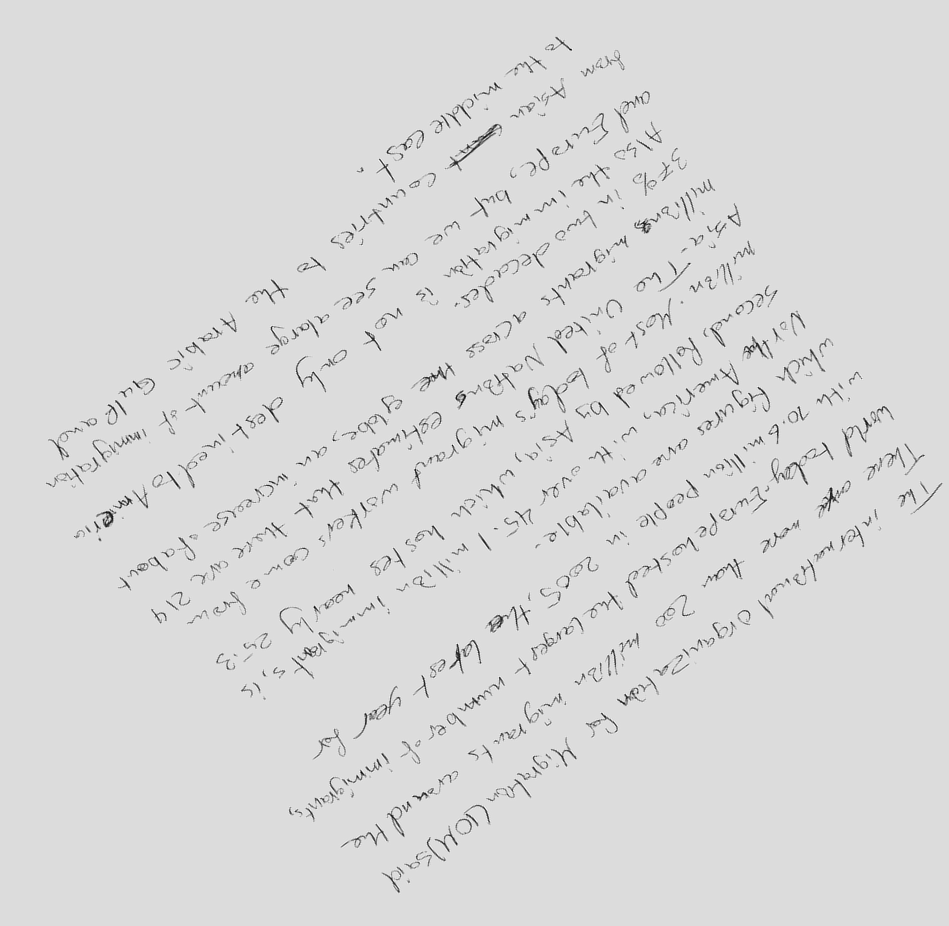 The international organization for Migration (IOM) said
There are more than 200 million migrants around the
world today. Europe hosted the largest number of immigrants,
with 70.6 million people in 2005, the latest year for
which figures are available.
North America, with over 45.1 million immigrants, is
second, followed by Asia, which hostes nearly 25.3
million. Most of todays migrant workers come from
Asia. The United Nations estimates that there are 214
millions migrants across the globe, an increase of about
37% in two decades.
Also the immigration is not only destined to Americ
and Europe, but we can see a large amount of immigration
from Asian countries to the Arabic Gulf and
to the middle east.